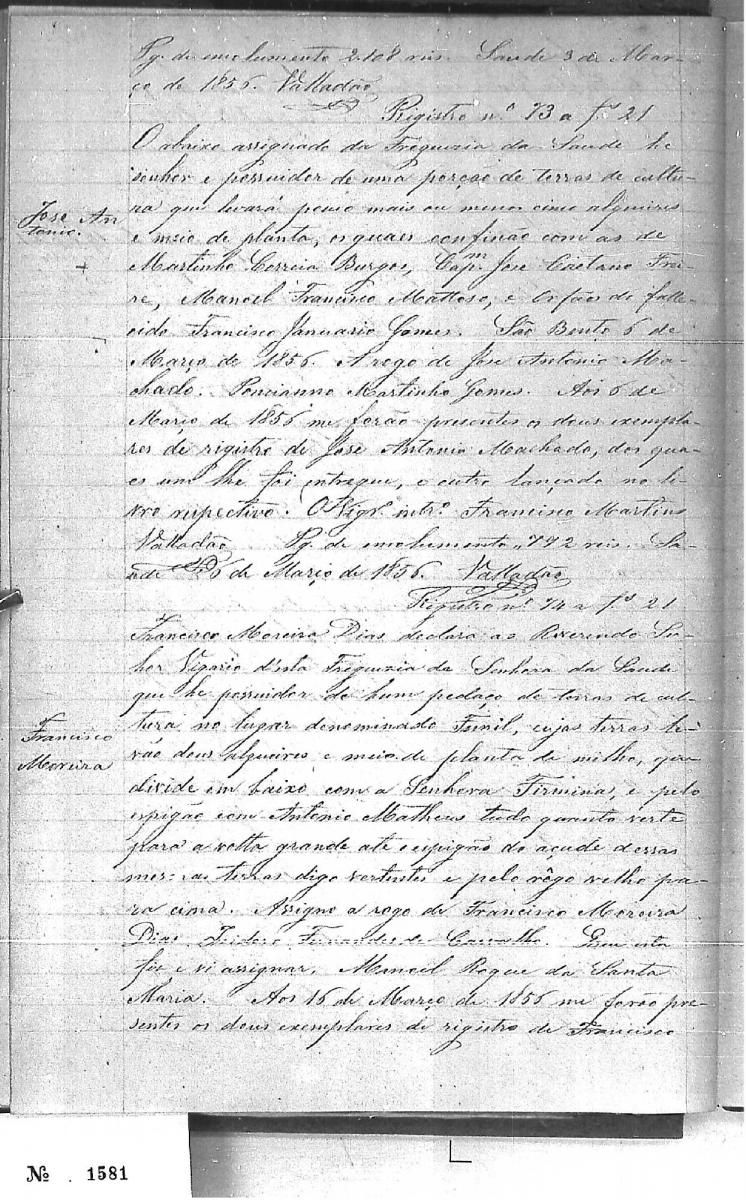 Pg. de emolumento 2.108 reis. Saude 3 de Mar-
ço de 1856. Valladão
Registro n.º 73 a f.s 21
O abaixo assignado da Freguezia da Saude he
senhor e possuidor de uma porção de terras de cultu-
ra que levará pouco mais ou menos cinco alqueires
e meio de planta, os quaes confinão com as de
Martinho Correia Burgos, Cap.m Jose Caetano Frei-
re, Manoel Francisco Mattoso, e Orfãos do falle-
cido Francisco Januario Gomes. São Bento 6 de
Março de 1856. A rogo de Jose Antonio Ma-
chado. Poncianno Martinho Gomes. Aos 6 de
Março de 1856 me forão presentes os dous exempla-
res de registro de Jose Antonio Machado, dos qua-
es um lhe foi entregue, e outro lançado no li-
vro respectivo. O Vigr.º intr.º Francisco Martins
Valladão Pg. de emolumento 792 reis. Sa-
ude 6 de Março de 1856. Valladão
Jose An
tonio.
+
Registro n.º 74 a f.s 21
Francisco Moreira Dias declara ao Reverendo Se-
nhor Vigario d'esta Freguezia da Senhora da Saude
que he possuidor de hum pedaço de terras de cul-
tura no lugar denominado Funil, cujas terras le-
vão dous alqueires e meio de planta de milho, que
divide em baixo com a Senhora Firmina, e pelo
espigão com Antonio Matheus tudo quanto verte
para a volta grande até o espigão do açude dessas
mes: as terras digo vertentes e pelo rêgo velho pa-
ra cima. Assigno a rogo de Francisco Moreira
Dias Isidoro Fernandes de Carvalho. Quem esta
fiz e vi assignar, Manoel Roque da Santa
Maria. Aos 16 de Março de 1856 me forão pre-
sentes os dous exemplares de registro de Francisco
Francisco
Moreira
Nº . 1581